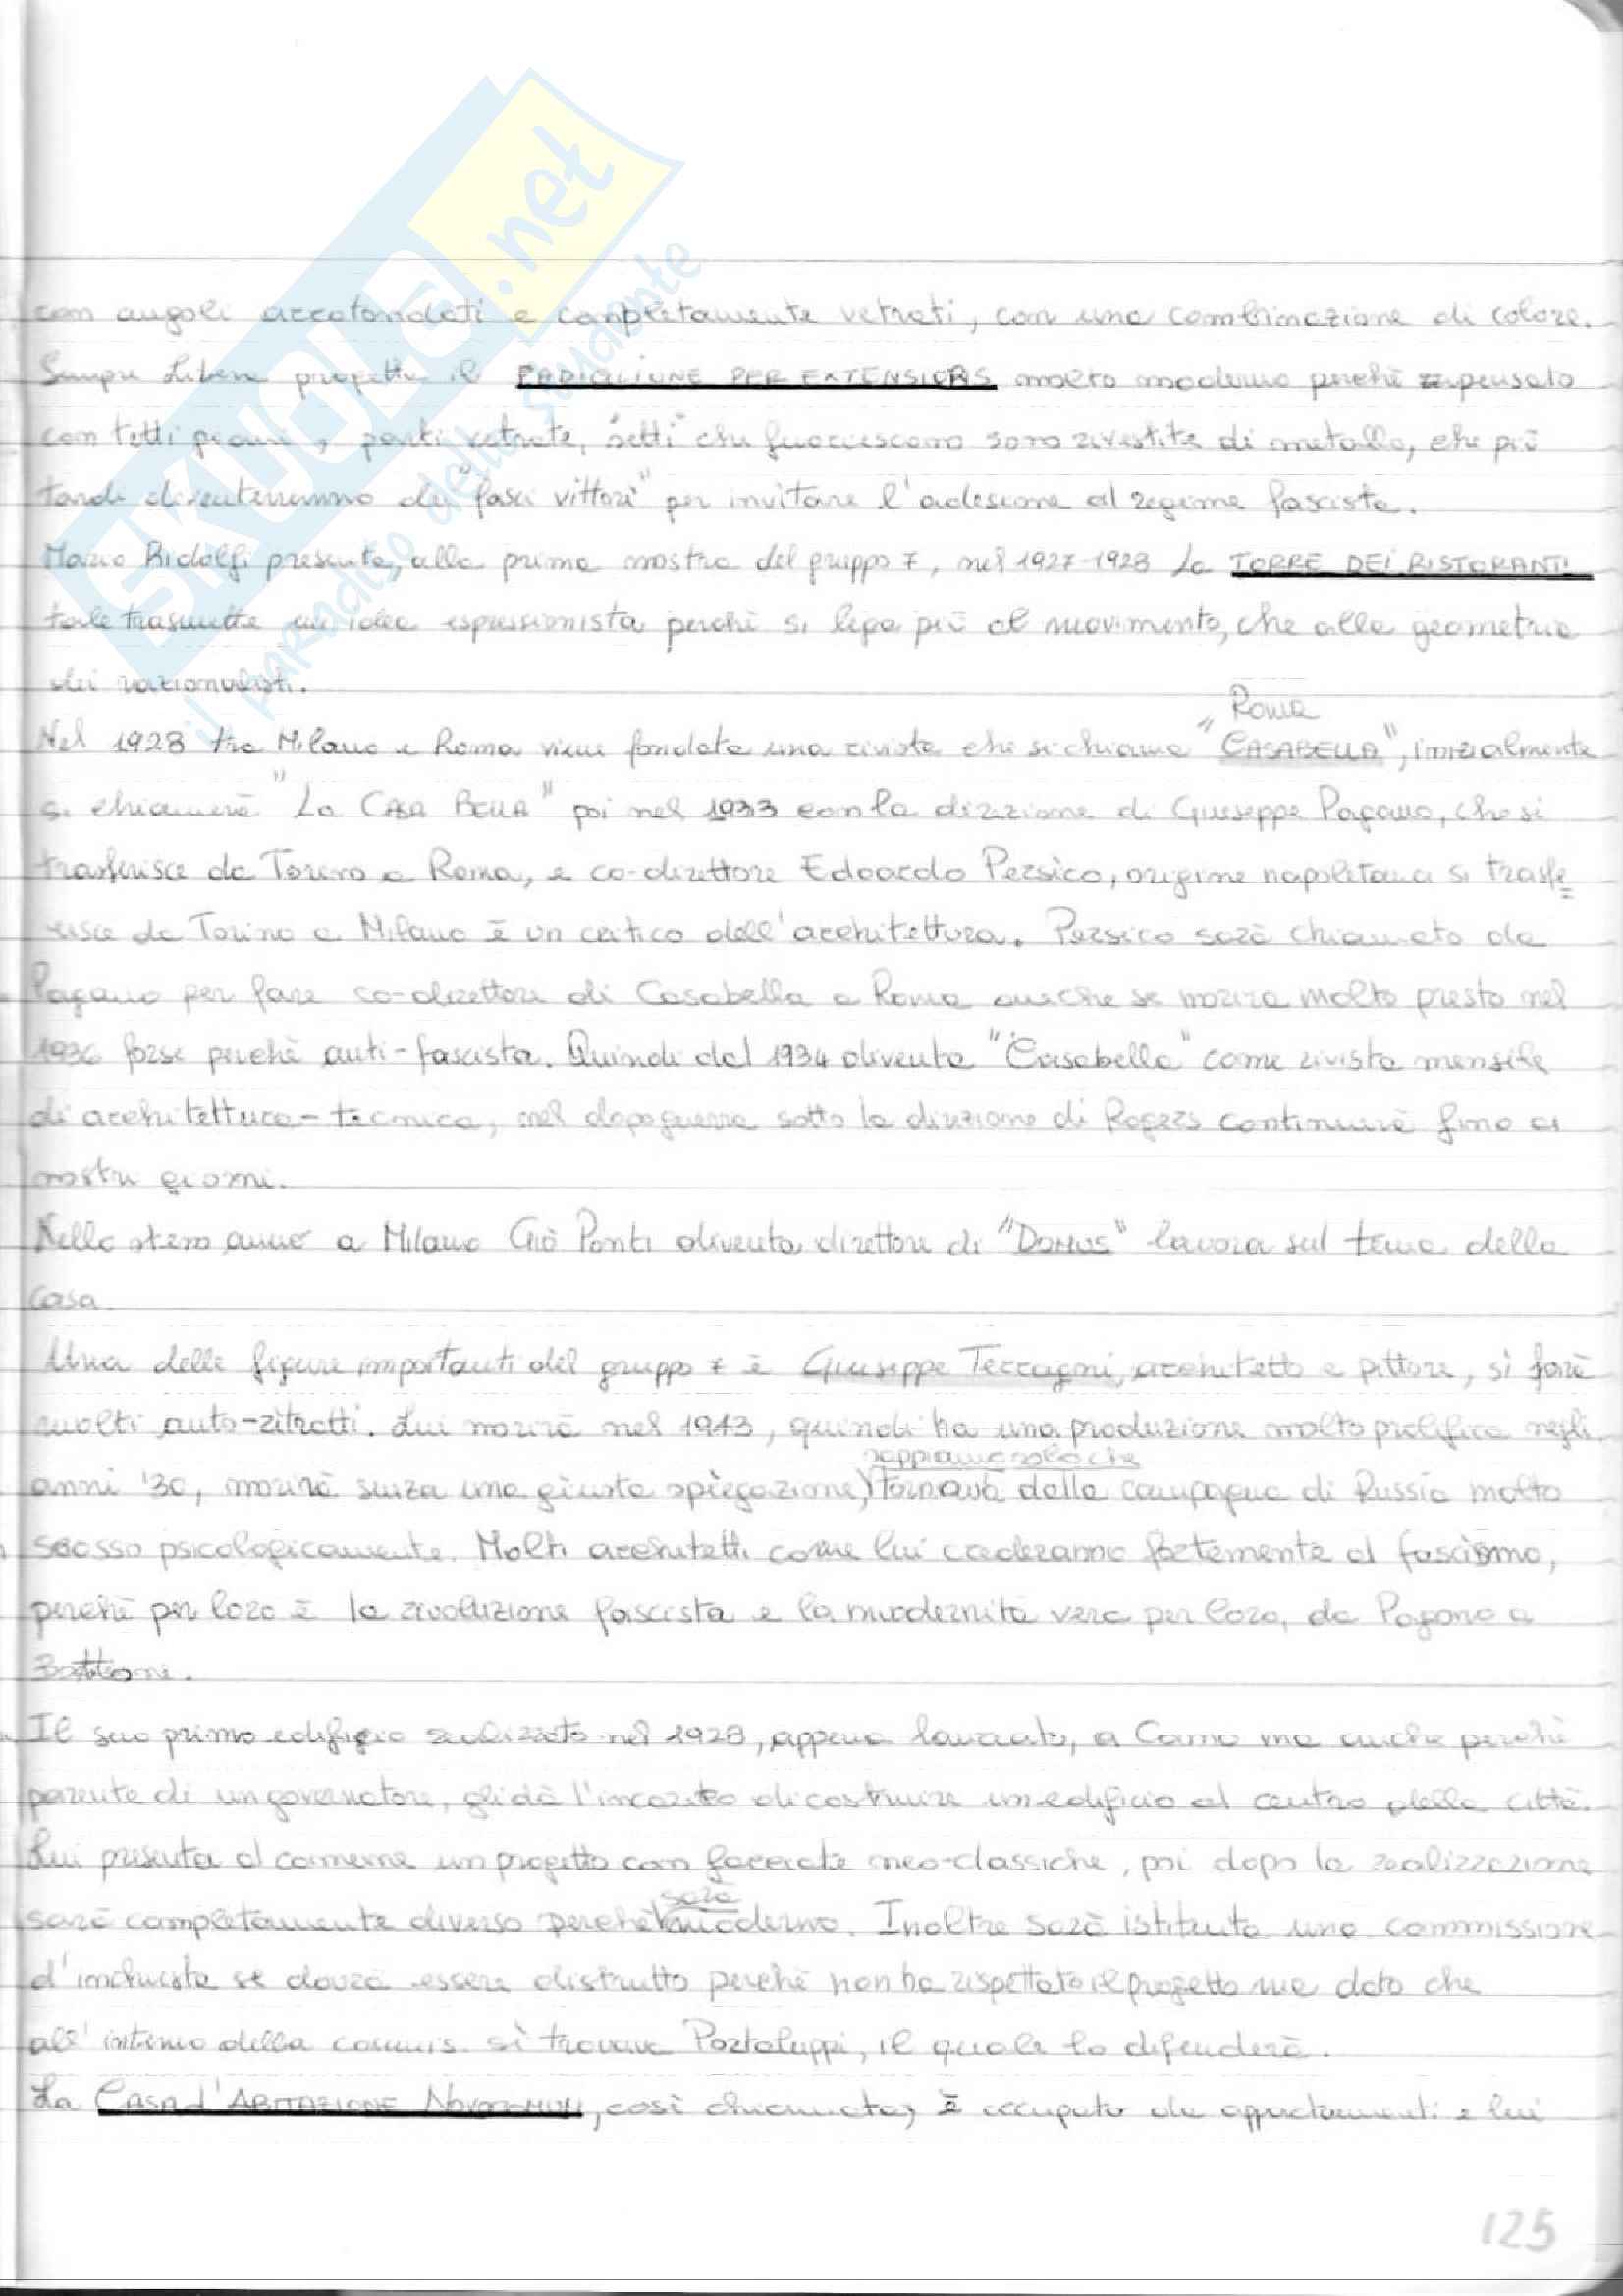 SKUOLA.net
il paradiso dello studente
con angoli arrotondati e completamente vetrati, con una combinazione di colore.
Sempre Libera progetta il PADIGLIONE PER molto moderno perchè pensato
con tetti piani, parti vetrate, "setti" che fuoriescono sono rivestite di metallo, che più
tardi diventeranno dei "fasci vittori" per invitare l'adesione al regime fascista.
Mario Ridolfi presenta, alla prima mostra del gruppo 7, nel 1927-1928 La TORRE DEI RISTORANTI
tale trasmette un'idea espressionista perchè si lega più al movimento, che alla geometria
dei razionalisti.
Roma
Nel 1928 tra Milano e Roma viene fondata una rivista che si chiama "CASABELLA", inizialmente
si chiamerà "La CASA BELLA" poi nel 1933 con la direzione di Giuseppe Pagano, che si
trasferisce da Torino a Roma, e co-direttore Edoardo Persico, origine napoletana si trasfe=
risce da Torino a Milano è un critico dell'architettura. Persico sarà chiamato da
Pagano per fare co-direttore di Casabella a Roma anche se morirà molto presto nel
1936 forse perchè anti-fascista. Quindi dal 1934 diventa "Casabella" come rivista mensile
di architettura-tecnica, nel dopoguerra sotto la direzione di Rogers continuerà fino ai
nostri giorni.
Nello stesso anno a Milano Giò Ponti diventa direttore di "DOMUS" lavora sul tema della
casa.
Una delle figure importanti del gruppo 7 è Giuseppe Terragni, architetto e pittore, si farà
molti auto-ritratti. Lui morirà nel 1943, quindi ha una produzione molto prolifica negli
sappiamo solo che
anni '30, morirà senza una giusta spiegazione, tornava dalla campagna di Russia molto
scosso psicologicamente. Molti architetti come lui crederanno fortemente al fascismo,
perchè per loro è la rivoluzione fascista e la modernità vera per loro, da Pagano a
Bottoni.
Il suo primo edificio realizzato nel 1928, appena laureato, a Como ma anche perchè
parente di un governatore, gli dà l'incarico di costruire un edificio al centro della città.
Lui presenta al comune un progetto con facciate neo-classiche, poi dopo la realizzazione
sarà
sarà completamente diverso perchè moderno. Inoltre sarà istituita una commissione
d'inchiesta se dovrà essere distrutto perchè non ha rispettato il progetto ma dato che
all'interno della commis. si trovava Portaluppi, il quale lo difenderà.
La CASA d'ABITAZIONE NOVOCOMUM, così chiamata, è occupata da appartamenti e lui
125